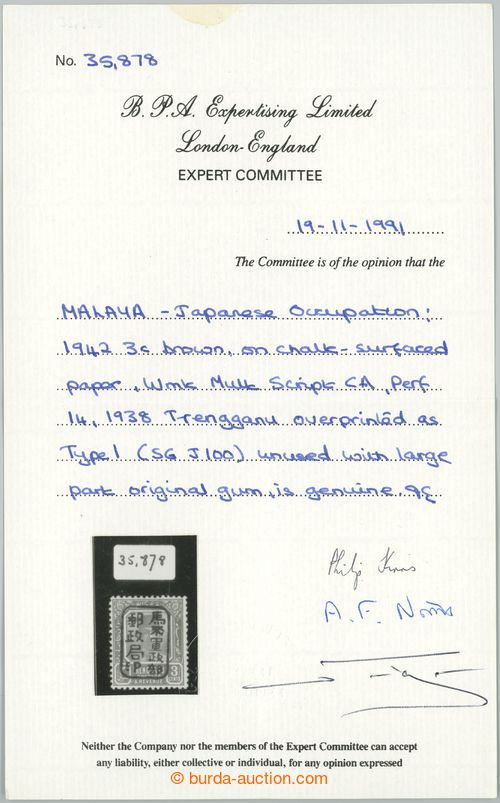 No. 35,878
B. P.A. Expertising Limited
London-England
EXPERT COMMITTEE
19-11-1991
The Committee is of the opinion that the
MALAYA - Japanese Occupation:
1942 3c brown, on chalk-surfaced
paper, Wmk Mult Script CA, Perf
14, 1938 Trengganu overprinted as
Type 1 (SG J100) unused with large
part original gum, is genuine.
35,878
馬來軍政部
郵政局
3
& REVENUE
Philip
A. F.
Neither the Company nor the members of the Expert Committee can accept
any liability, either collective or individual, for any opinion expressed
© burda-auction.com